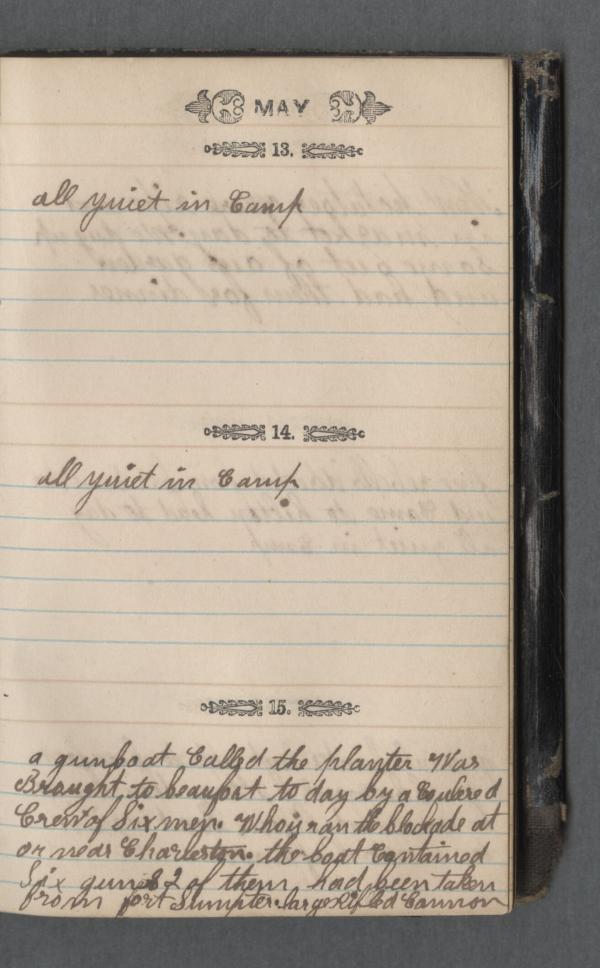 MAY
13.
all quiet in Camp
14.
all quiet in Camp
15.
a gunboat Called the planter Was
Brought to beaufort to day by a Coulered
Crew of Six men. Who ran the blockade at
or near Charleston. the boat Contained
Six guns 2 of them had been taken
from fort Sumpter. large Rifled Cannon